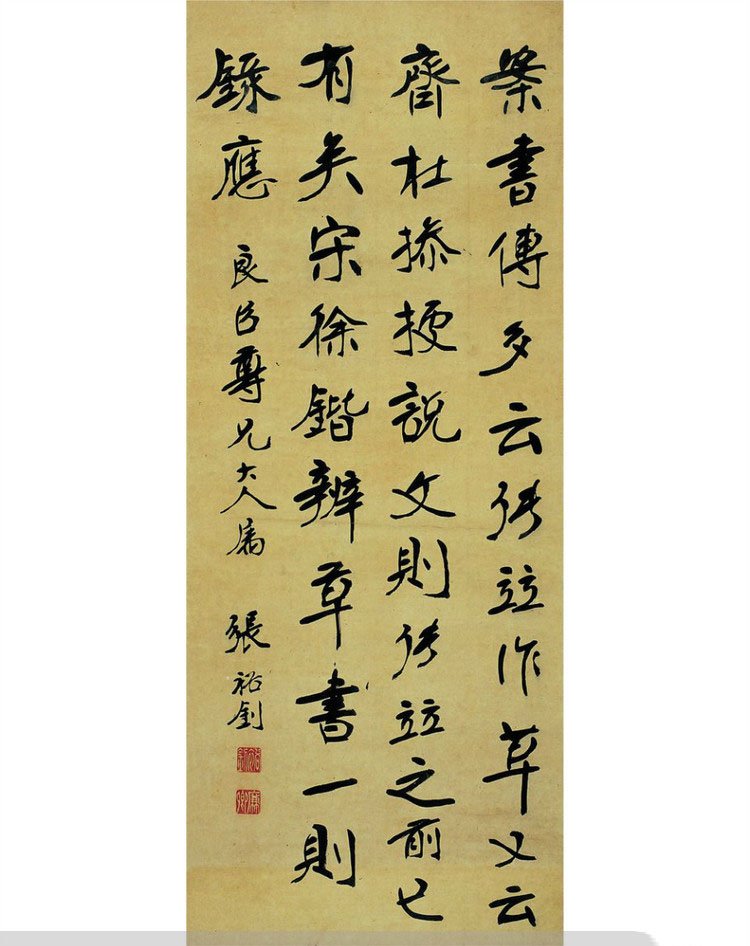 案書傳多云張竝作草又云
齊杜操挍說文則張竝之前已
有矣宋徐鍇辨草書一則
錄應
良臣尊兄大人屬
張裕釗